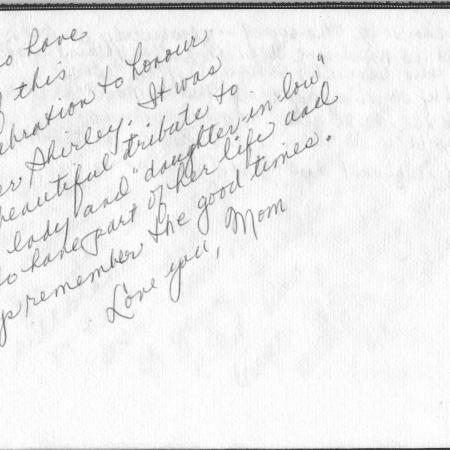 so have
this
ebration to honour
er Shirley. It was
beautiful tribute to
lady and "daughter-in-law"
so have part of her life and
ys remember the good times.
Love you, Mom